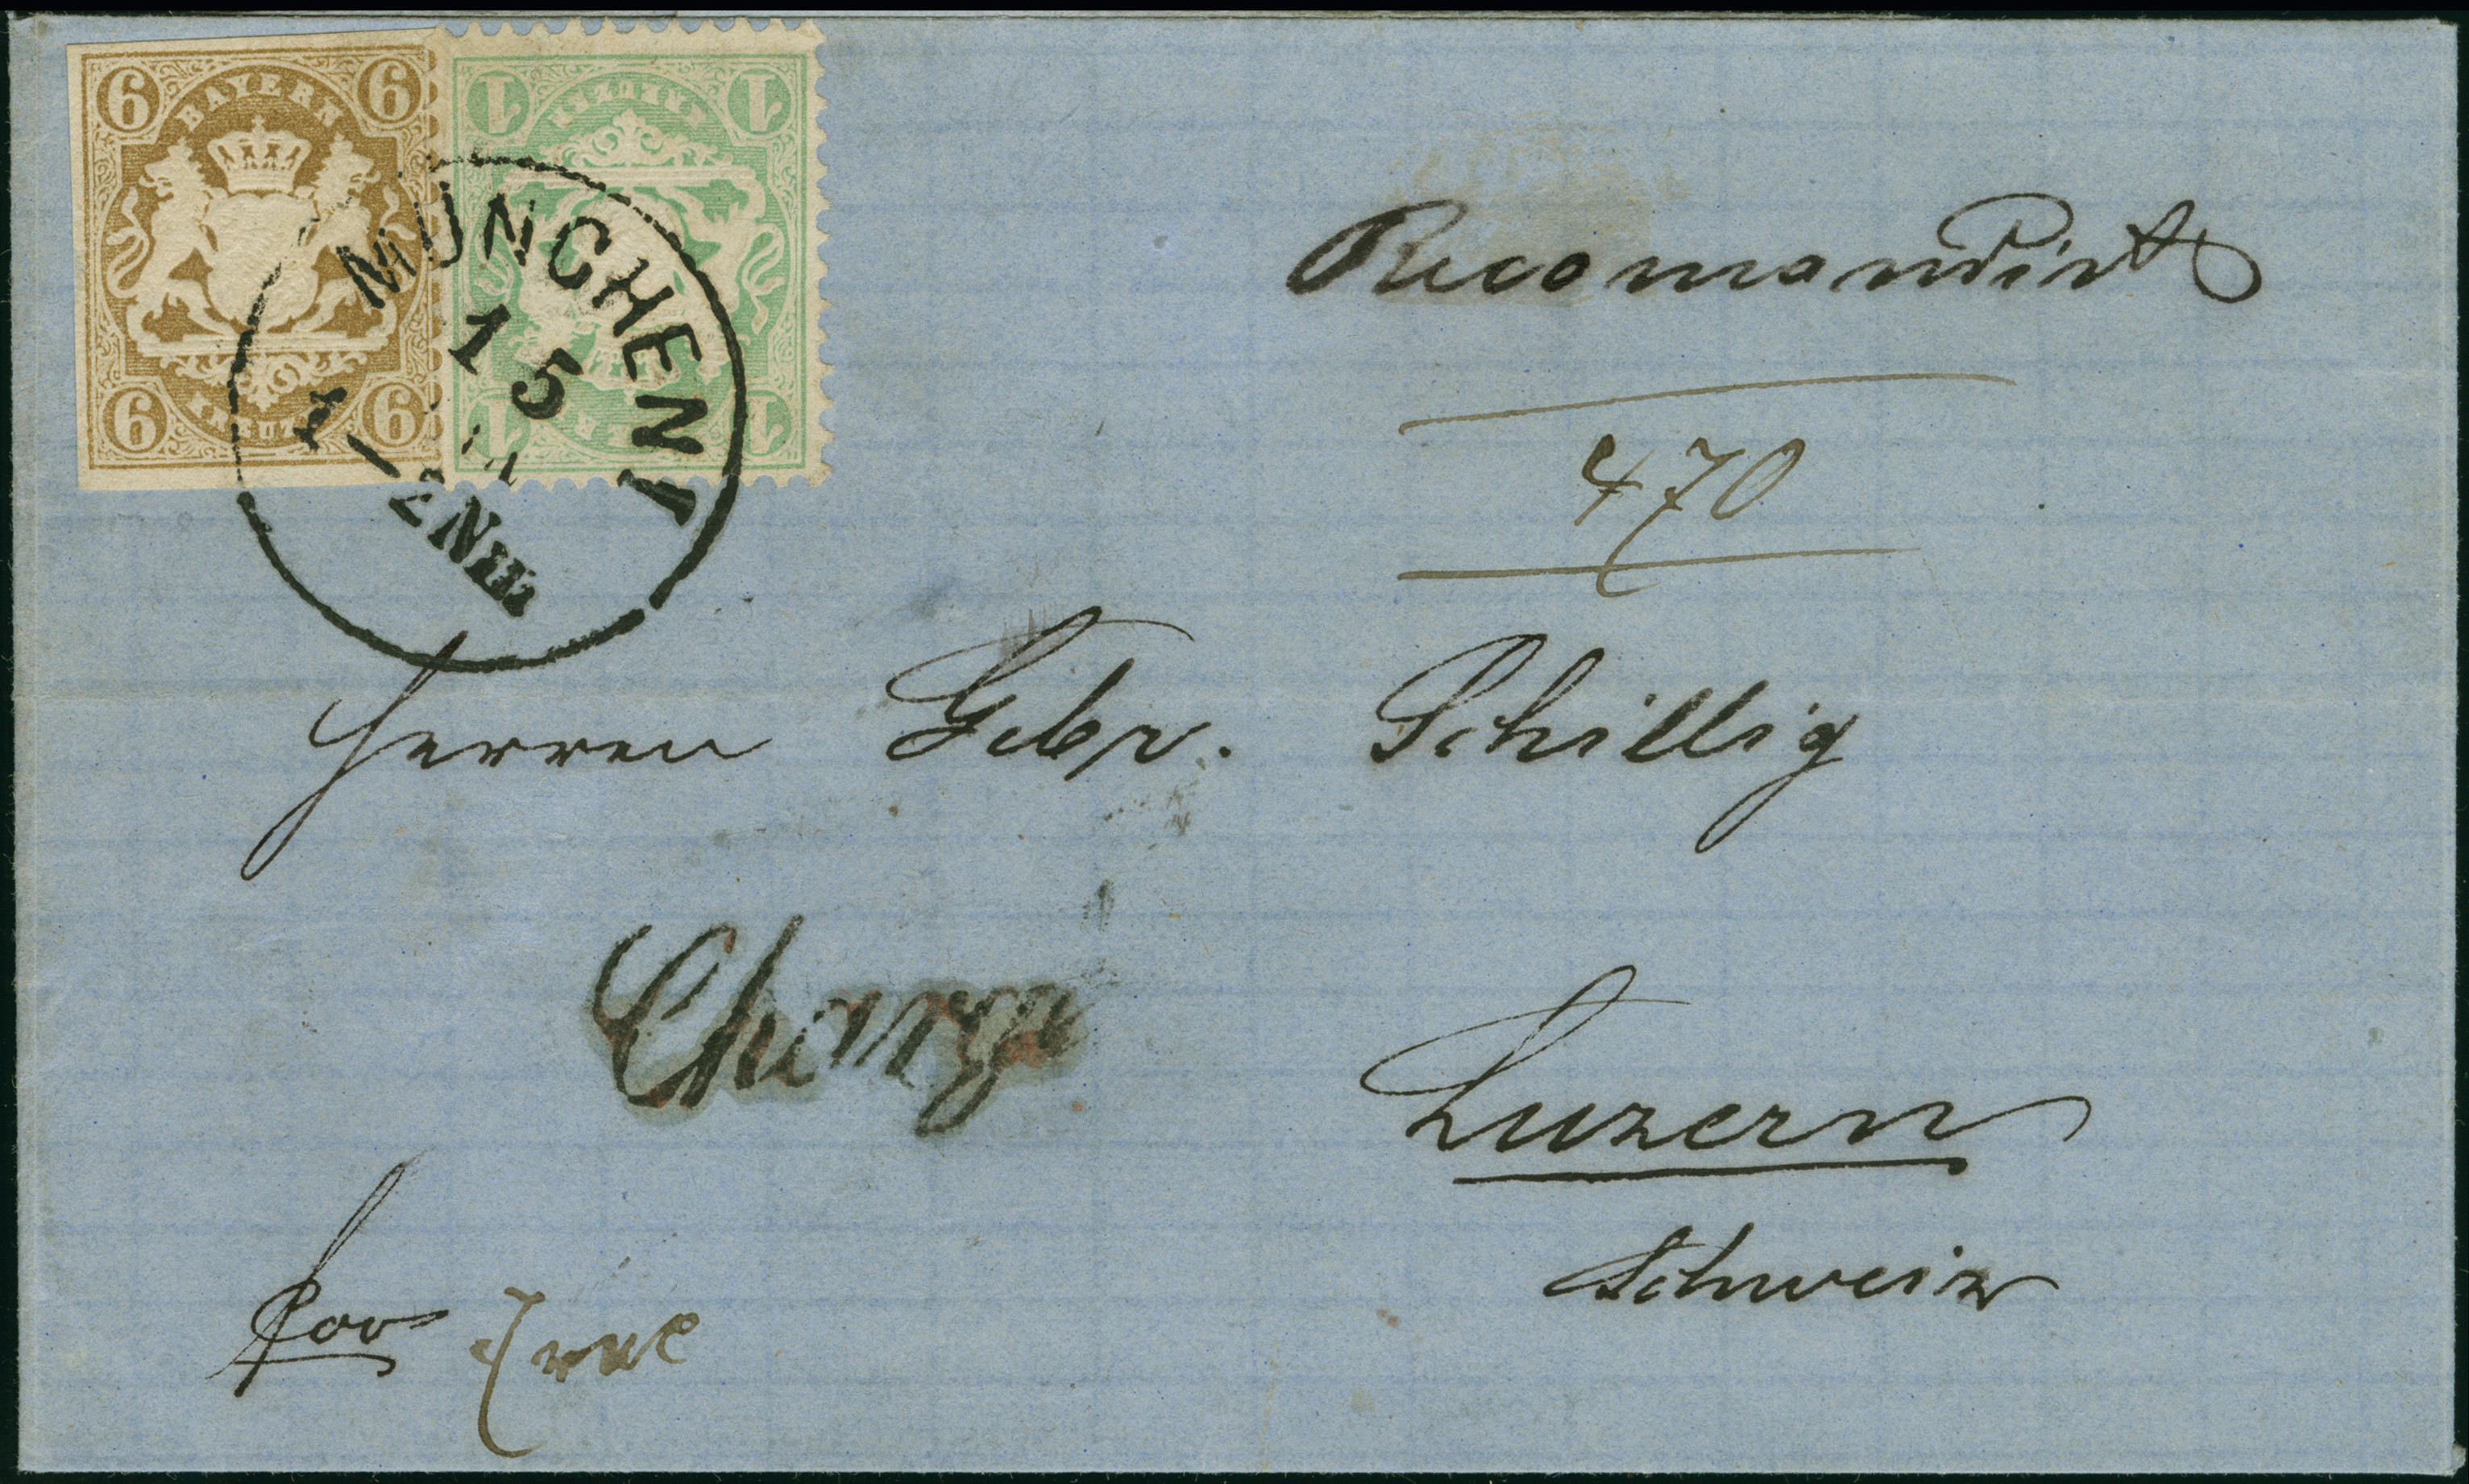 6 6
BAYERN
6 6
KREUZ
1 1
1 1
MÜNCHEN I
15
1-2Nm
Recomandirt
470
Herren Gebr. Schillig
Chargé
Luzern
Schweiz
fco